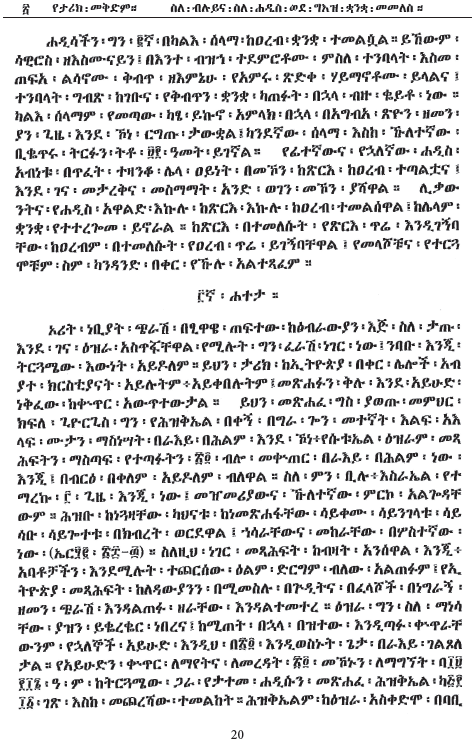 ፳ የታሪክ፡መቅድም። ስለ፡ብሉይና፡ስለ፡ሐዲስ፡ወደ፡ግእዝ፡ቋንቋ፡መመለስ ።
ሐዲሳችን፡ግን፡፪ኛ፡በካልእ፡ሰላማ፡ከዐረብ፡ቋንቋ፡ተመልሷል። ይኸውም፡
ሳዊሮስ፡ዘእስሙናይን፤በእንተ፡ብዝኀ፡ተደምሮቶሙ፡ምስለ፡ተንባላት፡እስመ፡
ጠፍአ፡ልሳኖሙ፡ቅብጥ፡ዘእምኔሁ፡የአምሩ፡ጽድቀ፡ሃይማኖቶሙ፡ይላልና፤
ተንባላት፡ግብጽ፡ከገቡና፡የቅብጥን፡ቋንቋ፡ካጠፉት፡በኋላ፡ብዙ፡ቈይቶ፡ነው ።
ካልእ፡ሰላማም፡የመጣው፡ካፄ፡ይኩኖ፡አምላክ፡በኋላ፡በአግብአ፡ጽዮን፡ዘመን፡
ያን፡ጊዜ፡እንደ፡ኾነ፡ርግጡ፡ታውቋል፤ካንደኛው፡ሰላማ፡እስከ፡ኹለተኛው፡
ቢቈጥሩ፡ትርፉን፡ትቶ፡፱፻፡ዓመት፡ይገኛል። የፊተኛውና፡የኋለኛው፡ሐዲስ፡
አብነቱ፡በጥፈት፡ተዛንቆ፡ሌላ፡ወይነት፡በመኾን፡ከጽርእ፡ከዐረብ፡ተጣልታና፤
እንደ፡ገና፡መታረቅና፡መስማማት፡አንድ፡ወገን፡መኾን፡ያሻዋል። ሊቃው
ንትና፡የሐዲስ፡አዋልድ፡እኩሉ፡ከጽርእ፡እኩሉ፡ከዐረብ፡ተመልሰዋል፤ከሌላም፡
ቋንቋ፡የተተረጐመ፡ይኖራል። ከጽርእ፡በተመለሱት፡የጽርእ፡ጥሬ፡እንዲገኝባ
ቸው፡ከዐረብም፡በተመለሱት፡የዐረብ፡ጥሬ፡ይገኝባቸዋል፤የመላሾቹና፡የተርጓ
ሞቹም፡ስም፡ካንዳንድ፡በቀር፡የኹሉ፡አልተጻፈም ።
፫ኛ፡ሐተታ ።
ኦሪት፡ነቢያት፡ጭራሽ፡በፂዋዌ፡ጠፍተው፡ከዕብራውያን፡እጅ፡ስለ፡ታጡ፡
እንደ፡ገና፡ዕዝራ፡አስጥፏቸዋል፡የሚሉት፡ግን፡ፈራሽ፡ነገር፡ነው፤ንባቡ፡እንጂ፡
ትርጓሜው፡እውነት፡አይዶለም። ይህን፡ታሪክ፡ከኢትዮጵያ፡በቀር፡ሌሎች፡አብ
ያተ፡ክርስቲያናት፡አይሉትም፥አይቀበሉትም፤መጽሐፉን፡ቅሉ፡እንደ፡አይሁድ፡
ነቅፈው፡ከቍጥር፡አውጥተውታል። ይህን፡መጽሐፈ፡ግስ፡ያወጡ፡መምህር፡
ክፍለ፡ጊዮርጊስ፡ግን፡የሕዝቅኤል፡በቀኝ፡በግራ፡ጐን፡መተኛት፡እልፍ፡አእ
ላፍ፡ሙታን፡ማስነሣት፡በራእይ፡በሕልም፡እንደ፡ኾነ፥የሱቱኤል፡ዕዝራም፡መጻ
ሕፍትን፡ማስጣፍ፡የተጣፉትን፡፳፬፡ብሎ፡መቍጠር፡በራእይ፡በሕልም፡ነው፡
እንጂ፤በብርዕ፡በቀለም፡አይዶለም፡ብለዋል። ስለ፡ምን፡ቢሉ፥እስራኤል፡የተ
ማረኩ፡፫፡ጊዜ፡እንጂ፡ነው፤መዠመሪያውና፡ኹለተኛው፡ምርኮ፡አልጐዳቸ
ውም። ሕዝቡ፡ከነጓዛቸው፡ካህናቱ፡ከነመጽሐፋቸው፡ሳይቀሙ፡ሳይንገላቱ፡ሳይ
ሳቡ፡ሳይጐተቱ፡በክብረት፡ወርደዋል፤ኀሳራቸውና፡መከራቸው፡በሦስተኛው፡
ነው። ስለዚህ፡ነገር፡መጻሕፍት፡ከብዛት፡አንሰዋል፡እንጂ፥
አባቶቻችን፡እንደሚሉት፡ተጨርሰው፡ዕልም፡ድርግም፡ብለው፡አልጠፉም፤የኢ
ትዮጵያ፡መጻሕፍት፡ከለዳውያንን፡በሚመስሉ፡በጕዲትና፡በፈላሾች፡በነግራኝ፡
ዘመን፡ጭራሽ፡እንዳልጠፉ፡ዘራቸው፡እንዳልተመተረ። ዕዝራ፡ግን፡ስለ፡ማነሳ
ቸው፡ያዝን፡ይቈረቈር፡ነበረና፤ከሚጠት፡በኋላ፡በዝተው፡እንዲጣፉ፡ቍጥራቸ
ውንም፡የኋለኞች፡አይሁድ፡እንዲህ፡በ፳፬፡እንዲወስኑት፡ጌታ፡በራእይ፡ገልጾለ
ታል። የአይሁድን፡ቍጥር፡ለማየትና፡ለመረዳት፡፳፬፡መኾኑን፡ለማግኘት፡
ዓ፡ም፡ከትርጓሜው፡ጋራ፡የታተመ፡ሐዲሱን፡መጽሐፈ፡ሕዝቅኤል፡
ገጽ፡እስከ፡መጨረሻው፡ተመልከት። ሕዝቅኤልም፡ከዕዝራ፡አስቀድሞ፡በባቢ
20